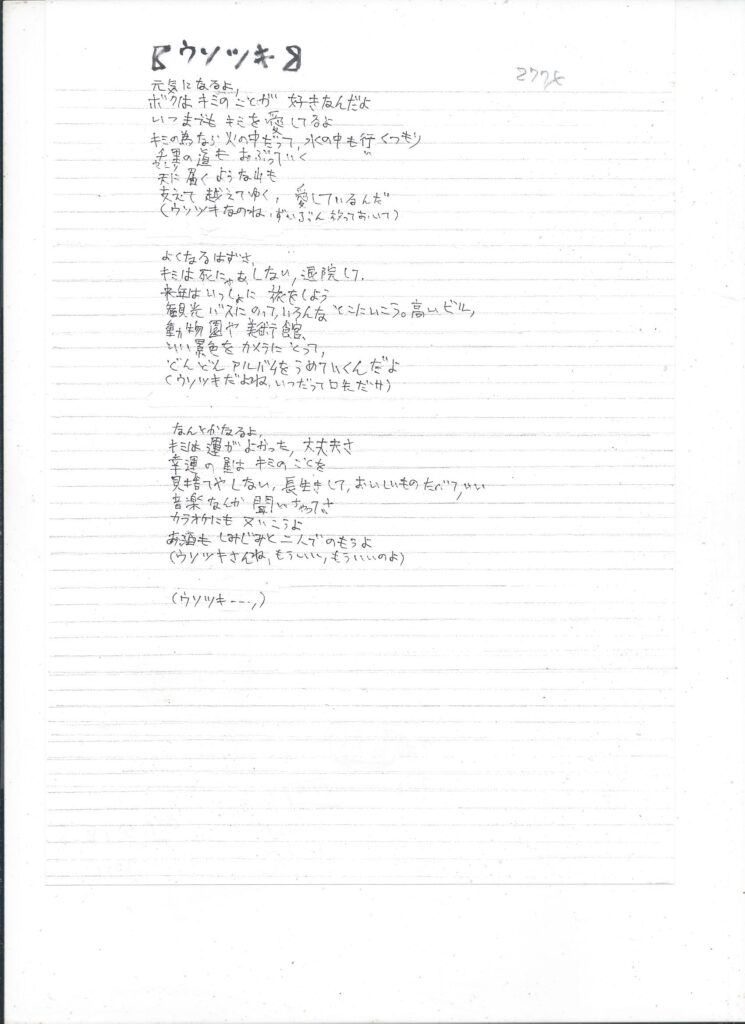 【ウソツキ】
277
元気になるよ,
ボクは キミのことが 好きなんだよ
いつまでも キミを愛してるよ
キミの為なら 火の中だって, 水の中も行くつもり
の道も おぶっていく
天に届くような山も
支えて 越えてゆく, 愛しているんだ
(ウソツキなのね, ずいぶん 言っておいて)
よくなるはずさ,
キミは 死にゃぁしない, 退院して,
来年は いっしょに 旅をしよう
観光バスにのって, いろんなとこにいこう。高いビル,
動物園や美術館,
いい景色を カメラにとって,
どんどん アルバムをうめていくんだよ
(ウソツキだよね, いつだって口先だけ)
なんとかなるよ,
キミは 運が よかった, 大丈夫さ
幸運の星は キミのことを
見捨てやしない, 長生きして, おいしいもの たべて,
音楽なんか 聞いちゃってさ
カラオケにも 又いこうよ
お酒も しみじみと 二人でのもうよ
(ウソツキさんね, もういい, もういいのよ)
(ウソツキ---,)